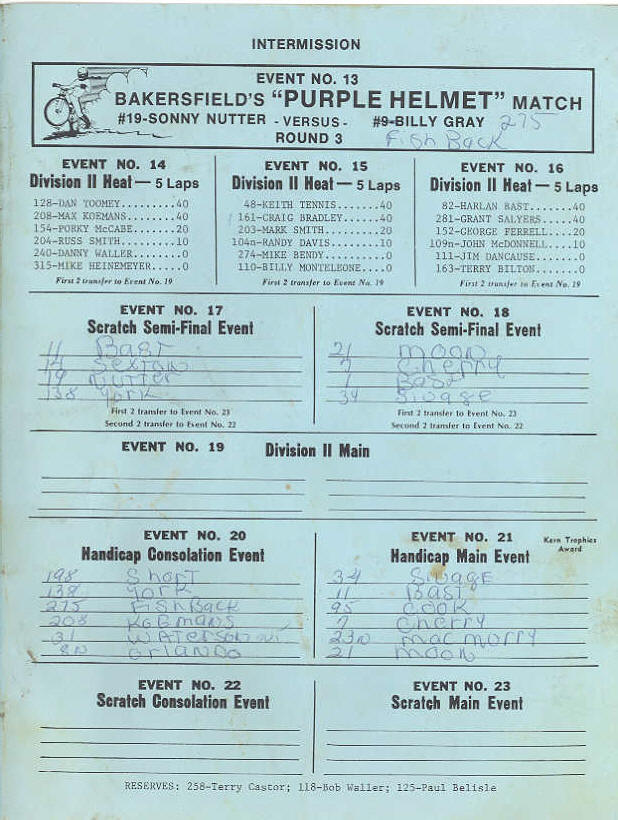 INTERMISSION
EVENT NO. 13
BAKERSFIELD'S "PURPLE HELMET" MATCH
#19-SONNY NUTTER - VERSUS - #9-BILLY GRAY 275
ROUND 3 FishBack
EVENT NO. 14
Division II Heat — 5 Laps
128-DAN TOOMEY.........40
208-MAX KOEMANS........40
154-PORKY McCABE.......20
204-RUSS SMITH.........10
240-DANNY WALLER.......0
315-MIKE HEINEMEYER....0
First 2 transfer to Event No. 19
EVENT NO. 15
Division II Heat — 5 Laps
48-KEITH TENNIS.......40
161-CRAIG BRADLEY......40
203-MARK SMITH.........20
104n-RANDY DAVIS.......10
274-MIKE BENDY.........0
110-BILLY MONTELEONE...0
First 2 transfer to Event No. 19
EVENT NO. 16
Division II Heat — 5 Laps
82-HARLAN BAST.......40
281-GRANT SALYERS.....40
152-GEORGE FERRELL....20
109n-JOHN McDONNELL...10
111-JIM DANCAUSE......0
163-TERRY BILTON......0
First 2 transfer to Event No. 19
EVENT NO. 17
Scratch Semi-Final Event
11 Bast
14 Sexton
19 Nutter
138 York
First 2 transfer to Event No. 23
Second 2 transfer to Event No. 22
EVENT NO. 18
Scratch Semi-Final Event
21 moon
7 Cherry
1 Bast
34 Swage
First 2 transfer to Event No. 23
Second 2 transfer to Event No. 22
EVENT NO. 19 Division II Main
EVENT NO. 20
Handicap Consolation Event
198 Short
138 York
275 FishBack
208 Koemans
31 WATERSON
8N Orlando
EVENT NO. 21
Kern Trophies
Award
Handicap Main Event
34 Swage
11 Bast
95 Cook
7 Cherry
23N macmurry
21 moon
EVENT NO. 22
Scratch Consolation Event
EVENT NO. 23
Scratch Main Event
RESERVES: 258-Terry Castor; 118-Bob Waller; 125-Paul Belisle